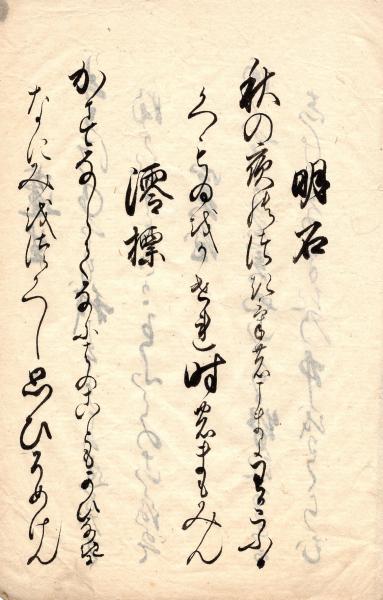 明石
秋の夜のつきけの駒よ我こふる
くもゐをかけれ時のまもみん
澪標
かすならてなにはのこともかひなきに
なにみをつくし思ひそめけん